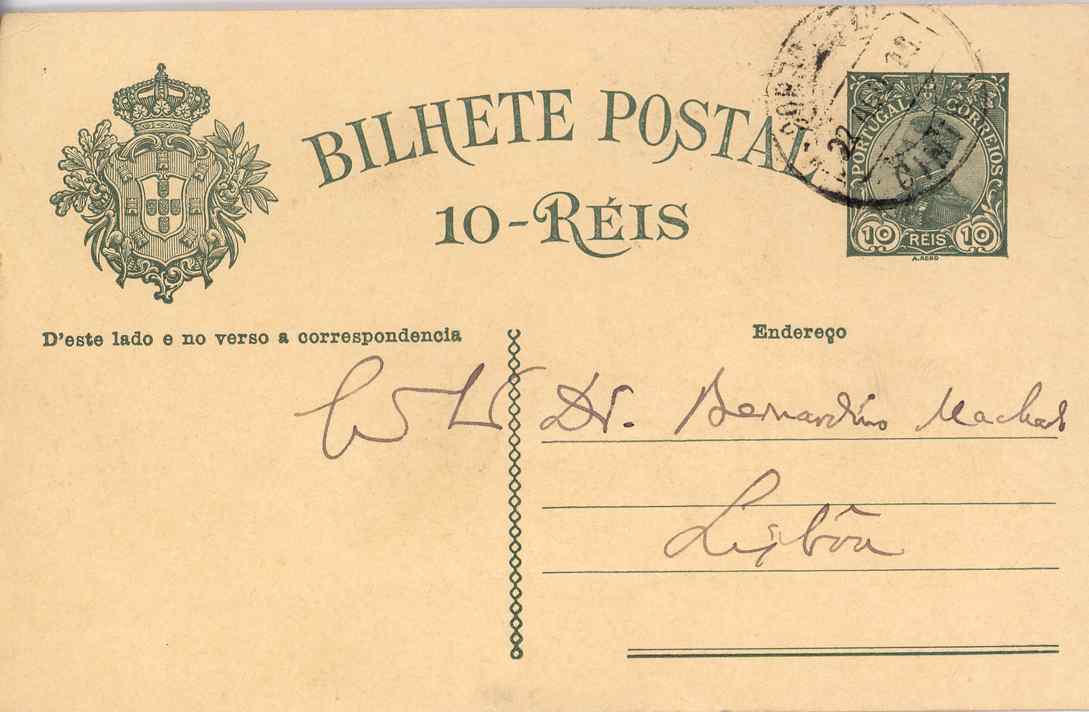 BILHETE POSTAL
10-RÉIS
PORTUGAL CORREIOS
10 REIS 10
PORTO
22
D'este lado e no verso a correspondencia
Endereço
Dr. Bernardino Machado
Lisbôa